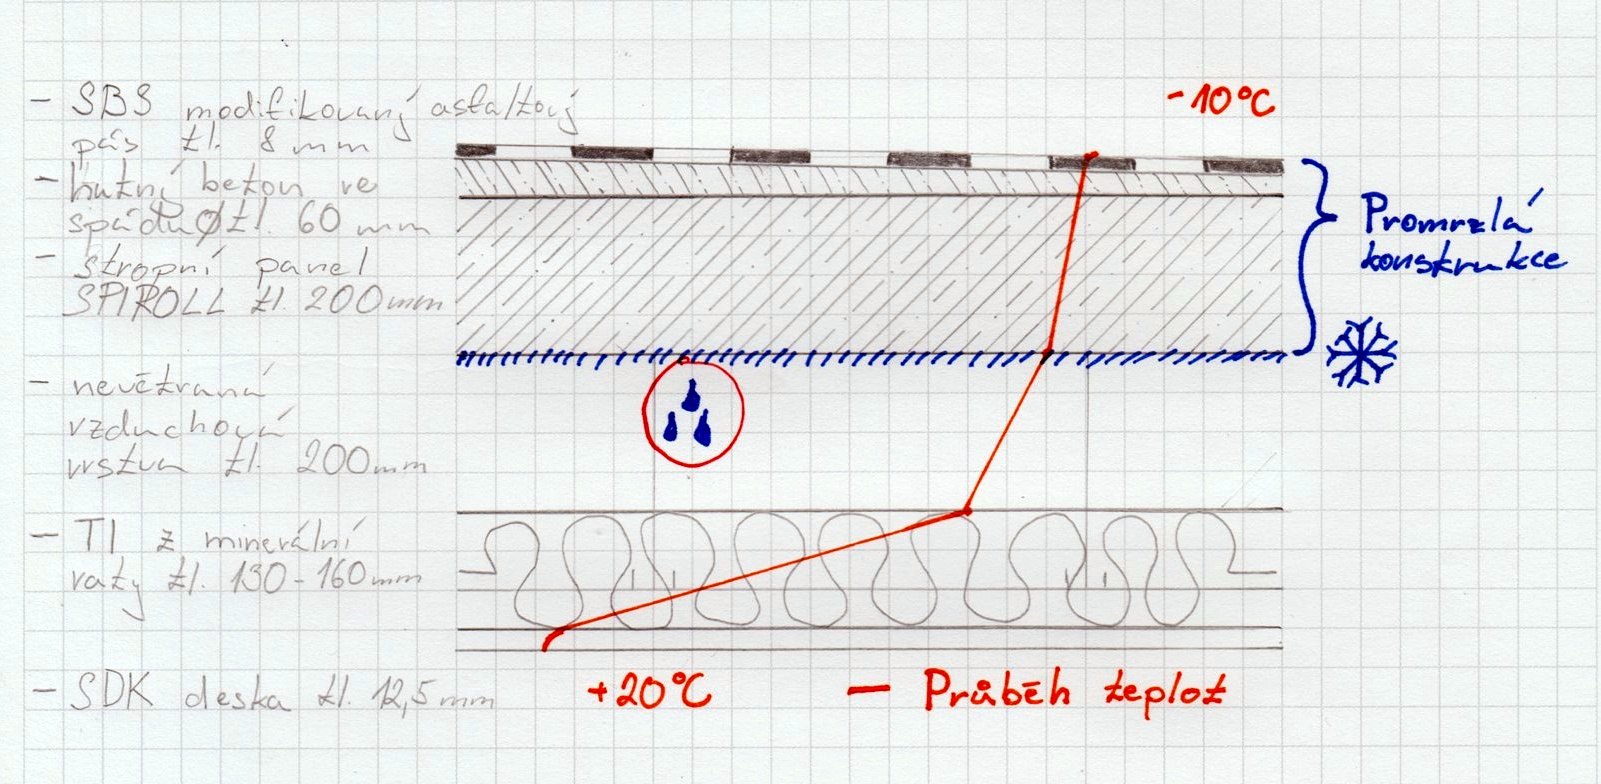 - SBS modifikovaný asfaltový
pás tl. 8 mm
- hutný beton ve
spádu Ø tl. 60 mm
- stropní panel
SPIROLL tl. 200mm
- nevětraná
vzduchová
vrstva tl. 200mm
- TI z minerální
vaty tl. 130-160mm
- SDK deska tl. 12,5mm
-10°C
Promrzlá
konstrukce
+20°C
- Průběh teplot